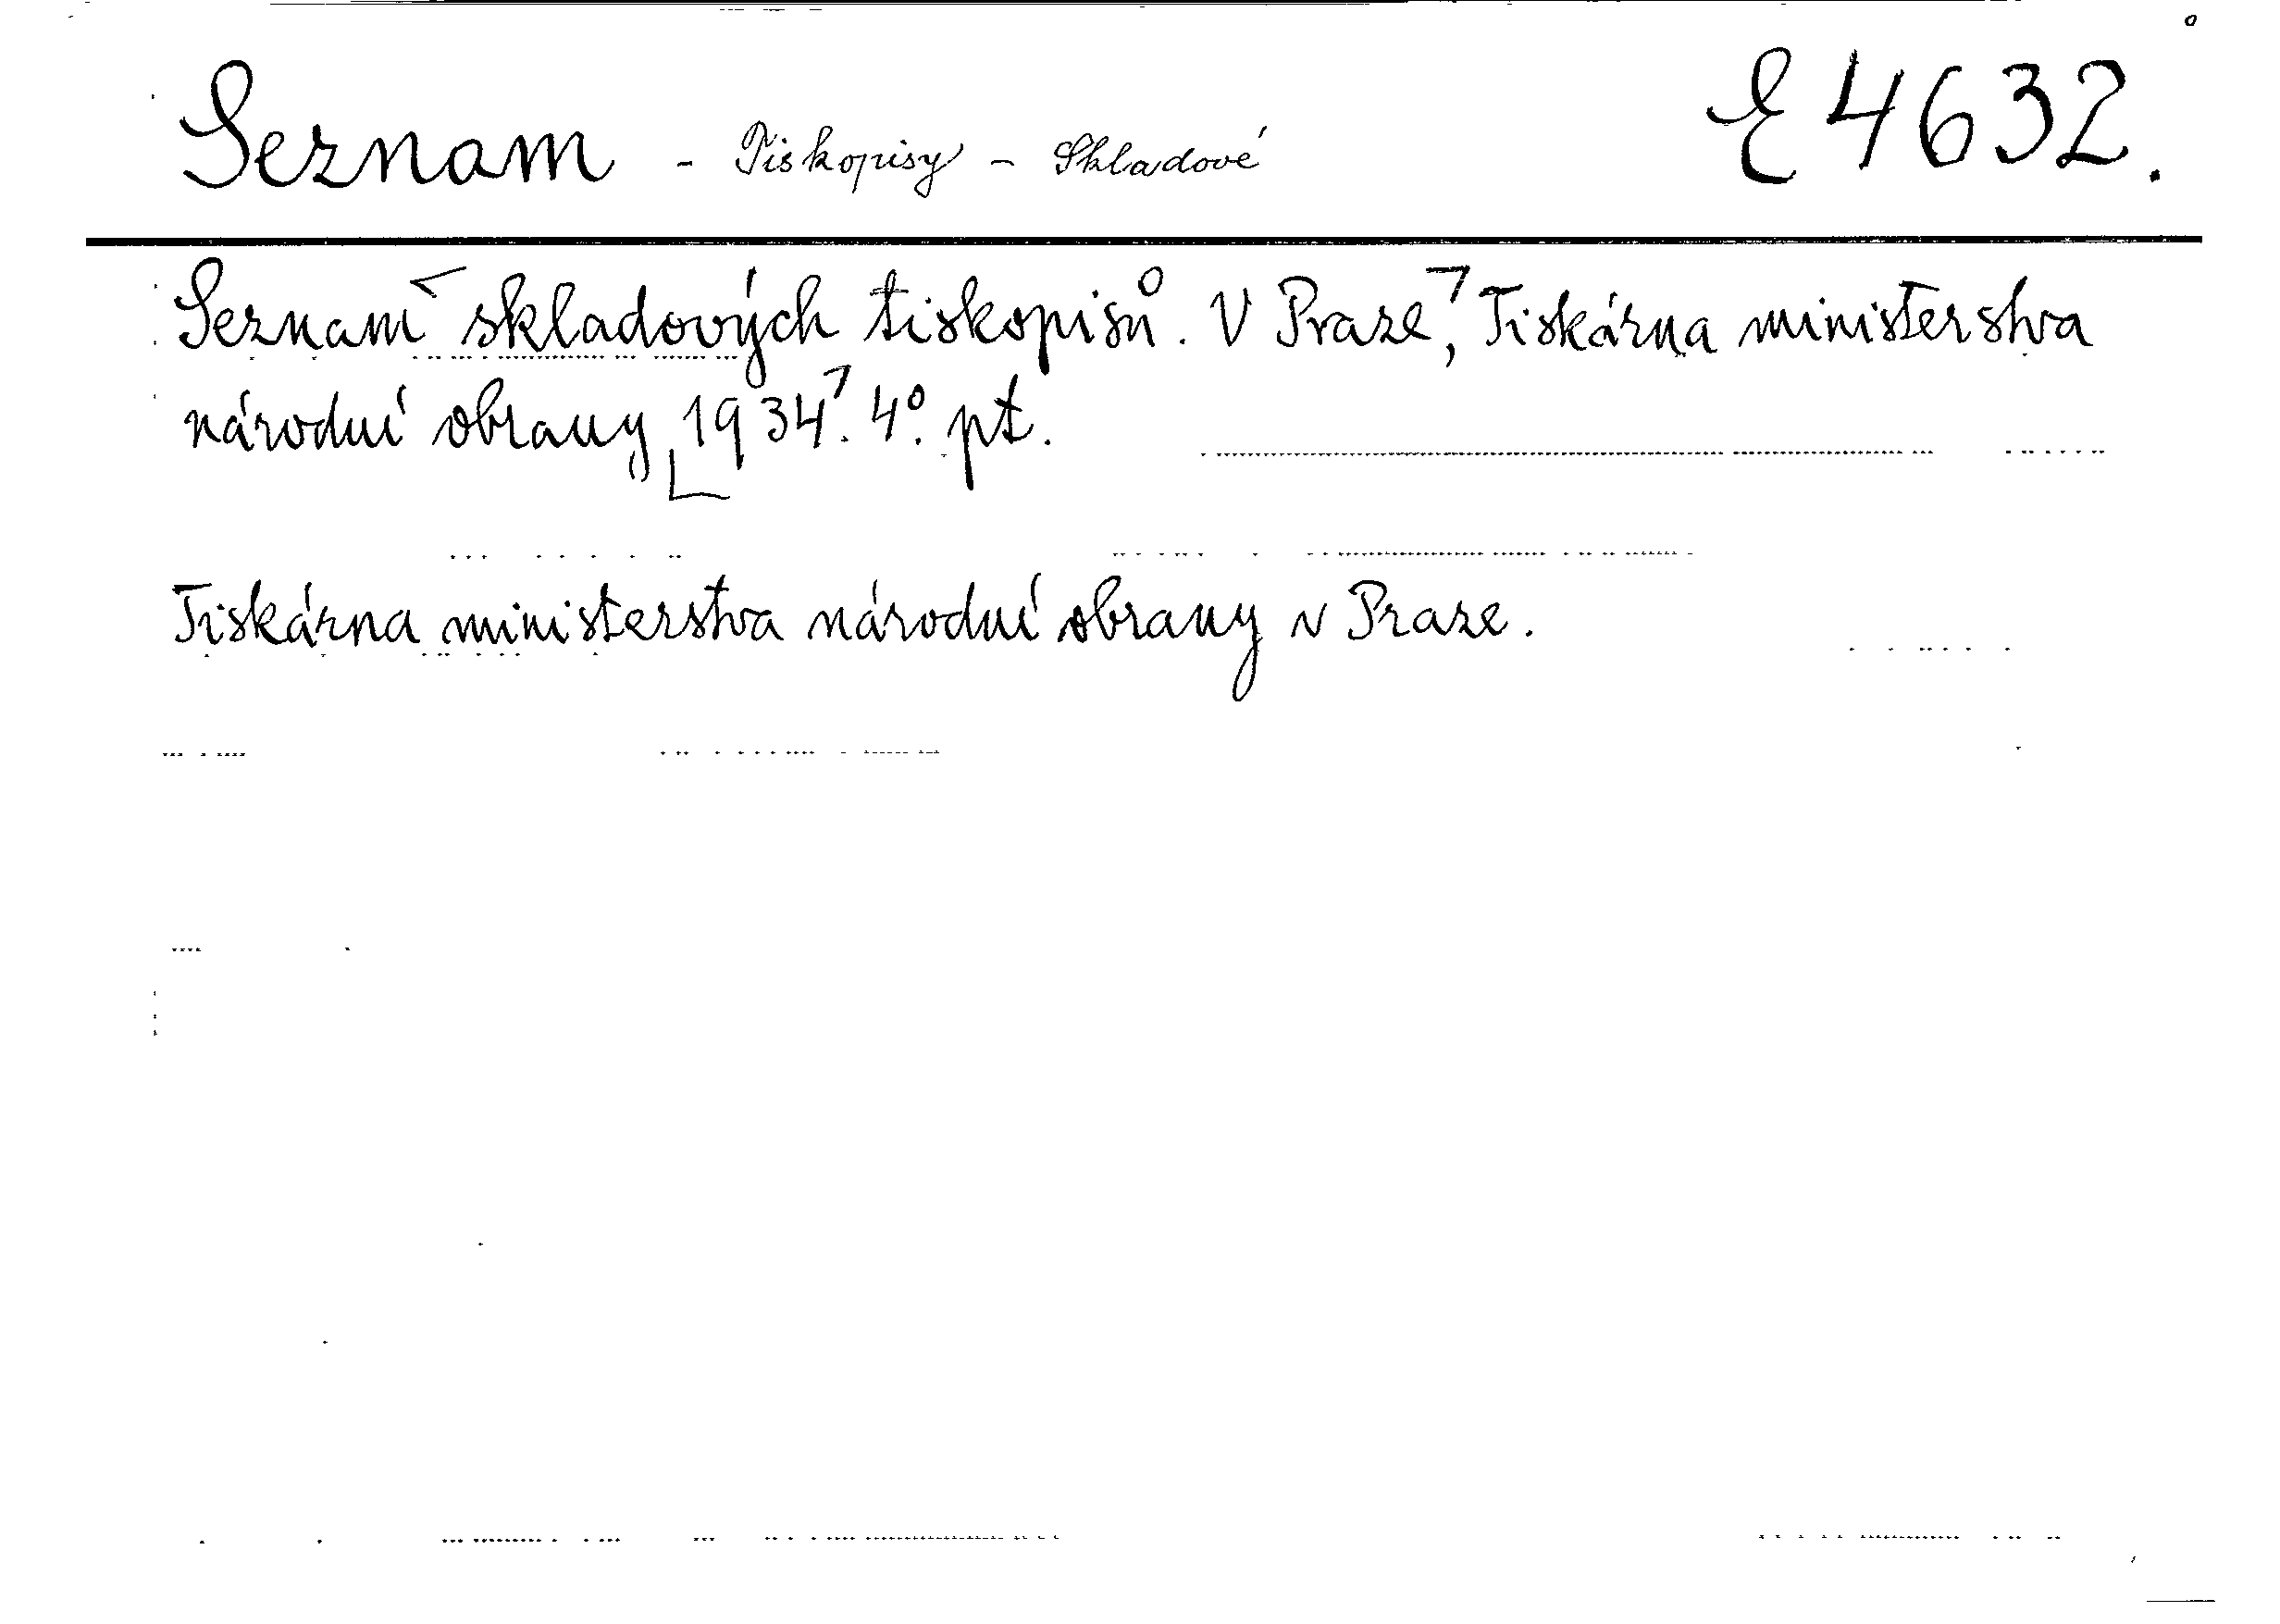 Seznam - Tiskopisy - Skladové E 4632.
Seznam skladových tiskopisů. V Praze, Tiskárna ministerstva
národní obrany, 1934. 4°. pt.
Tiskárna ministerstva národní obrany v Praze.